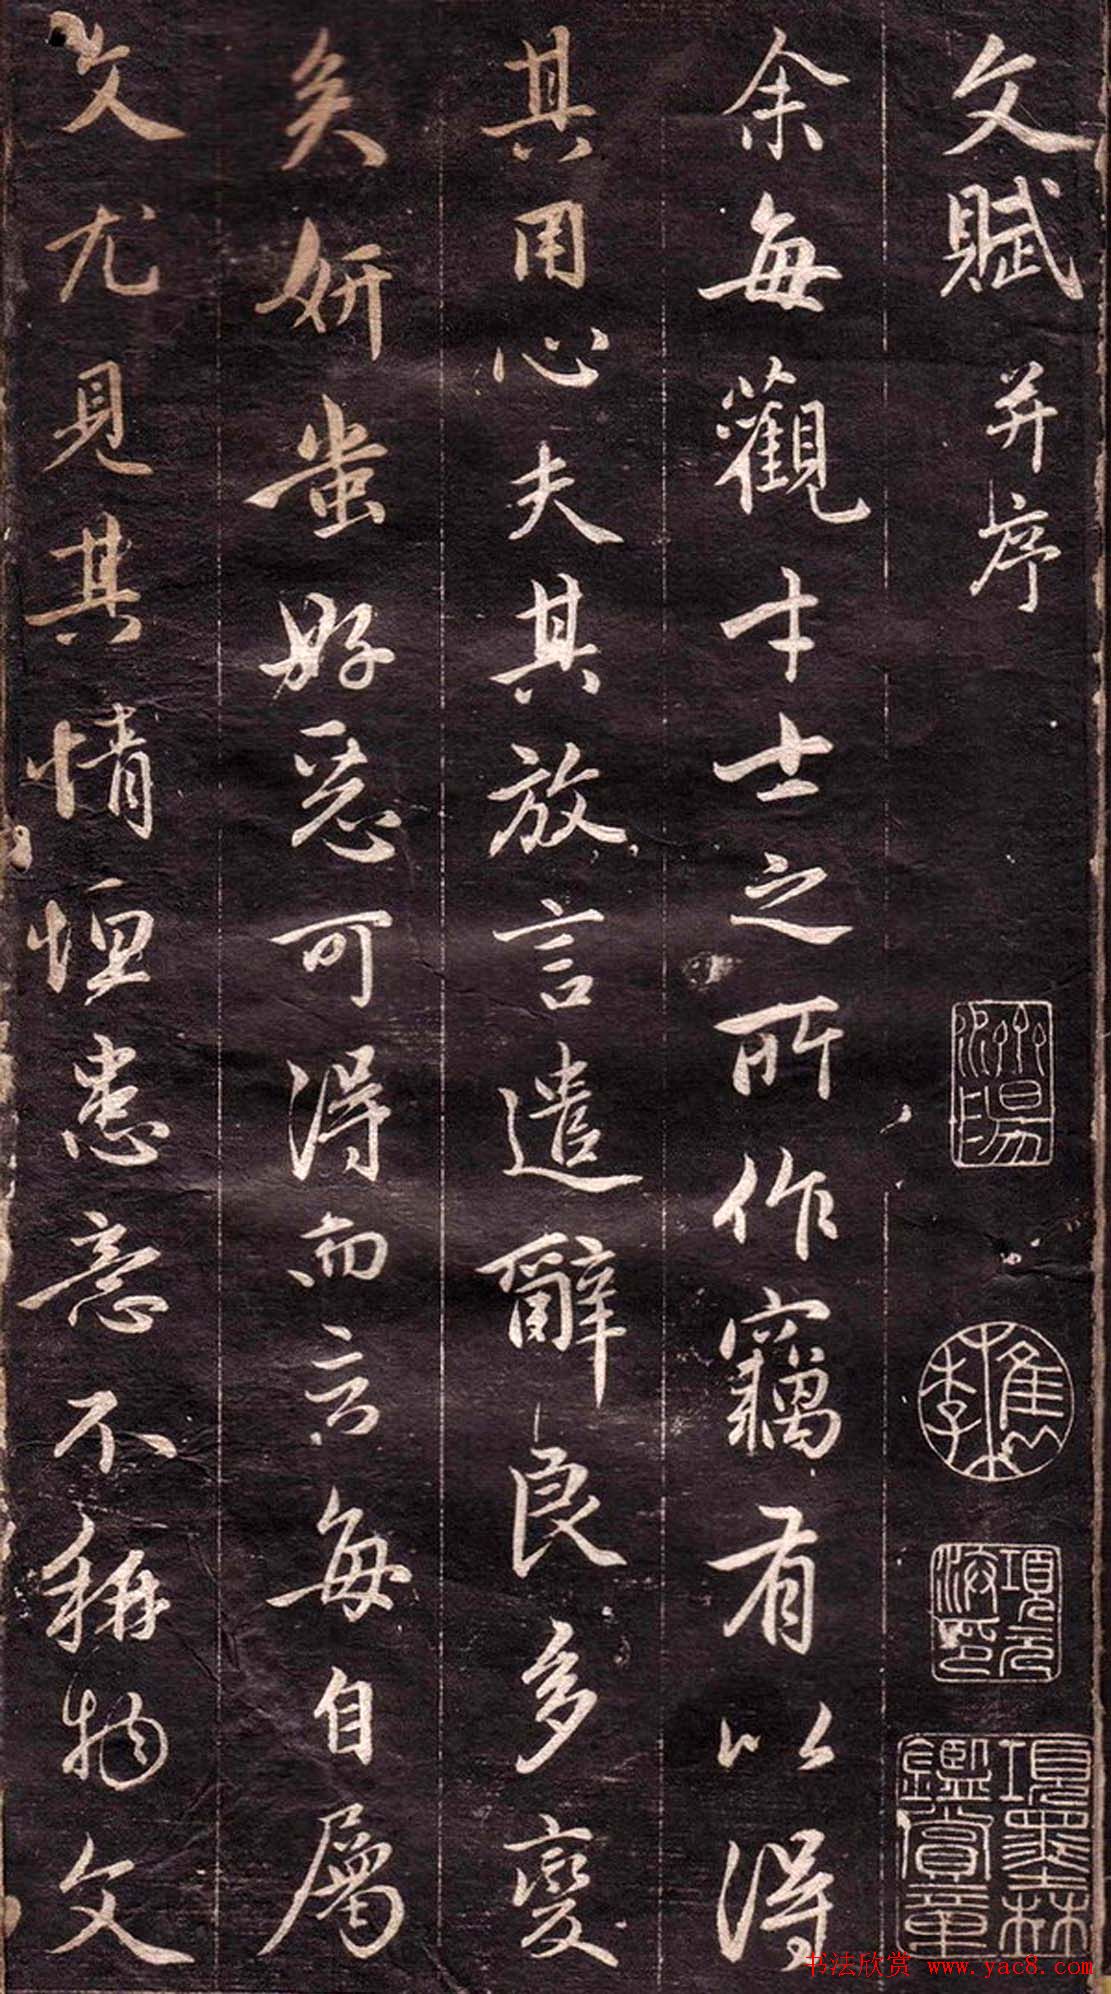 文賦 并序
余每觀才士之所作竊有以得
其用心夫其放言遣辭良多變
矣妍蚩好惡可得而言每自屬
文尤見其情恒患意不稱物文
檇李
項墨林鑑賞章
书法欣赏 www.yac8.com